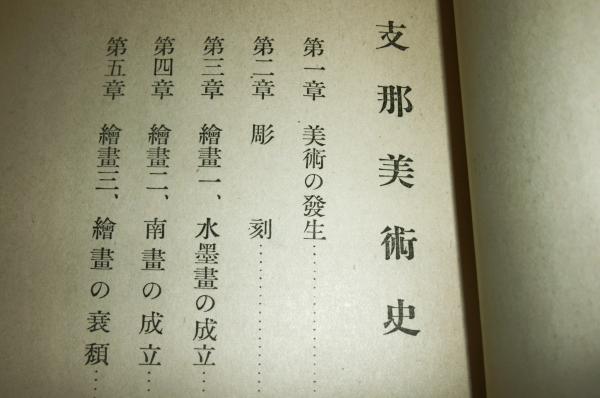 支那美術史
第一章 美術の發生……………
第二章 彫刻……………
第三章 繪畫一、水墨畫の成立……
第四章 繪畫二、南畫の成立……
第五章 繪畫三、繪畫の衰頽……